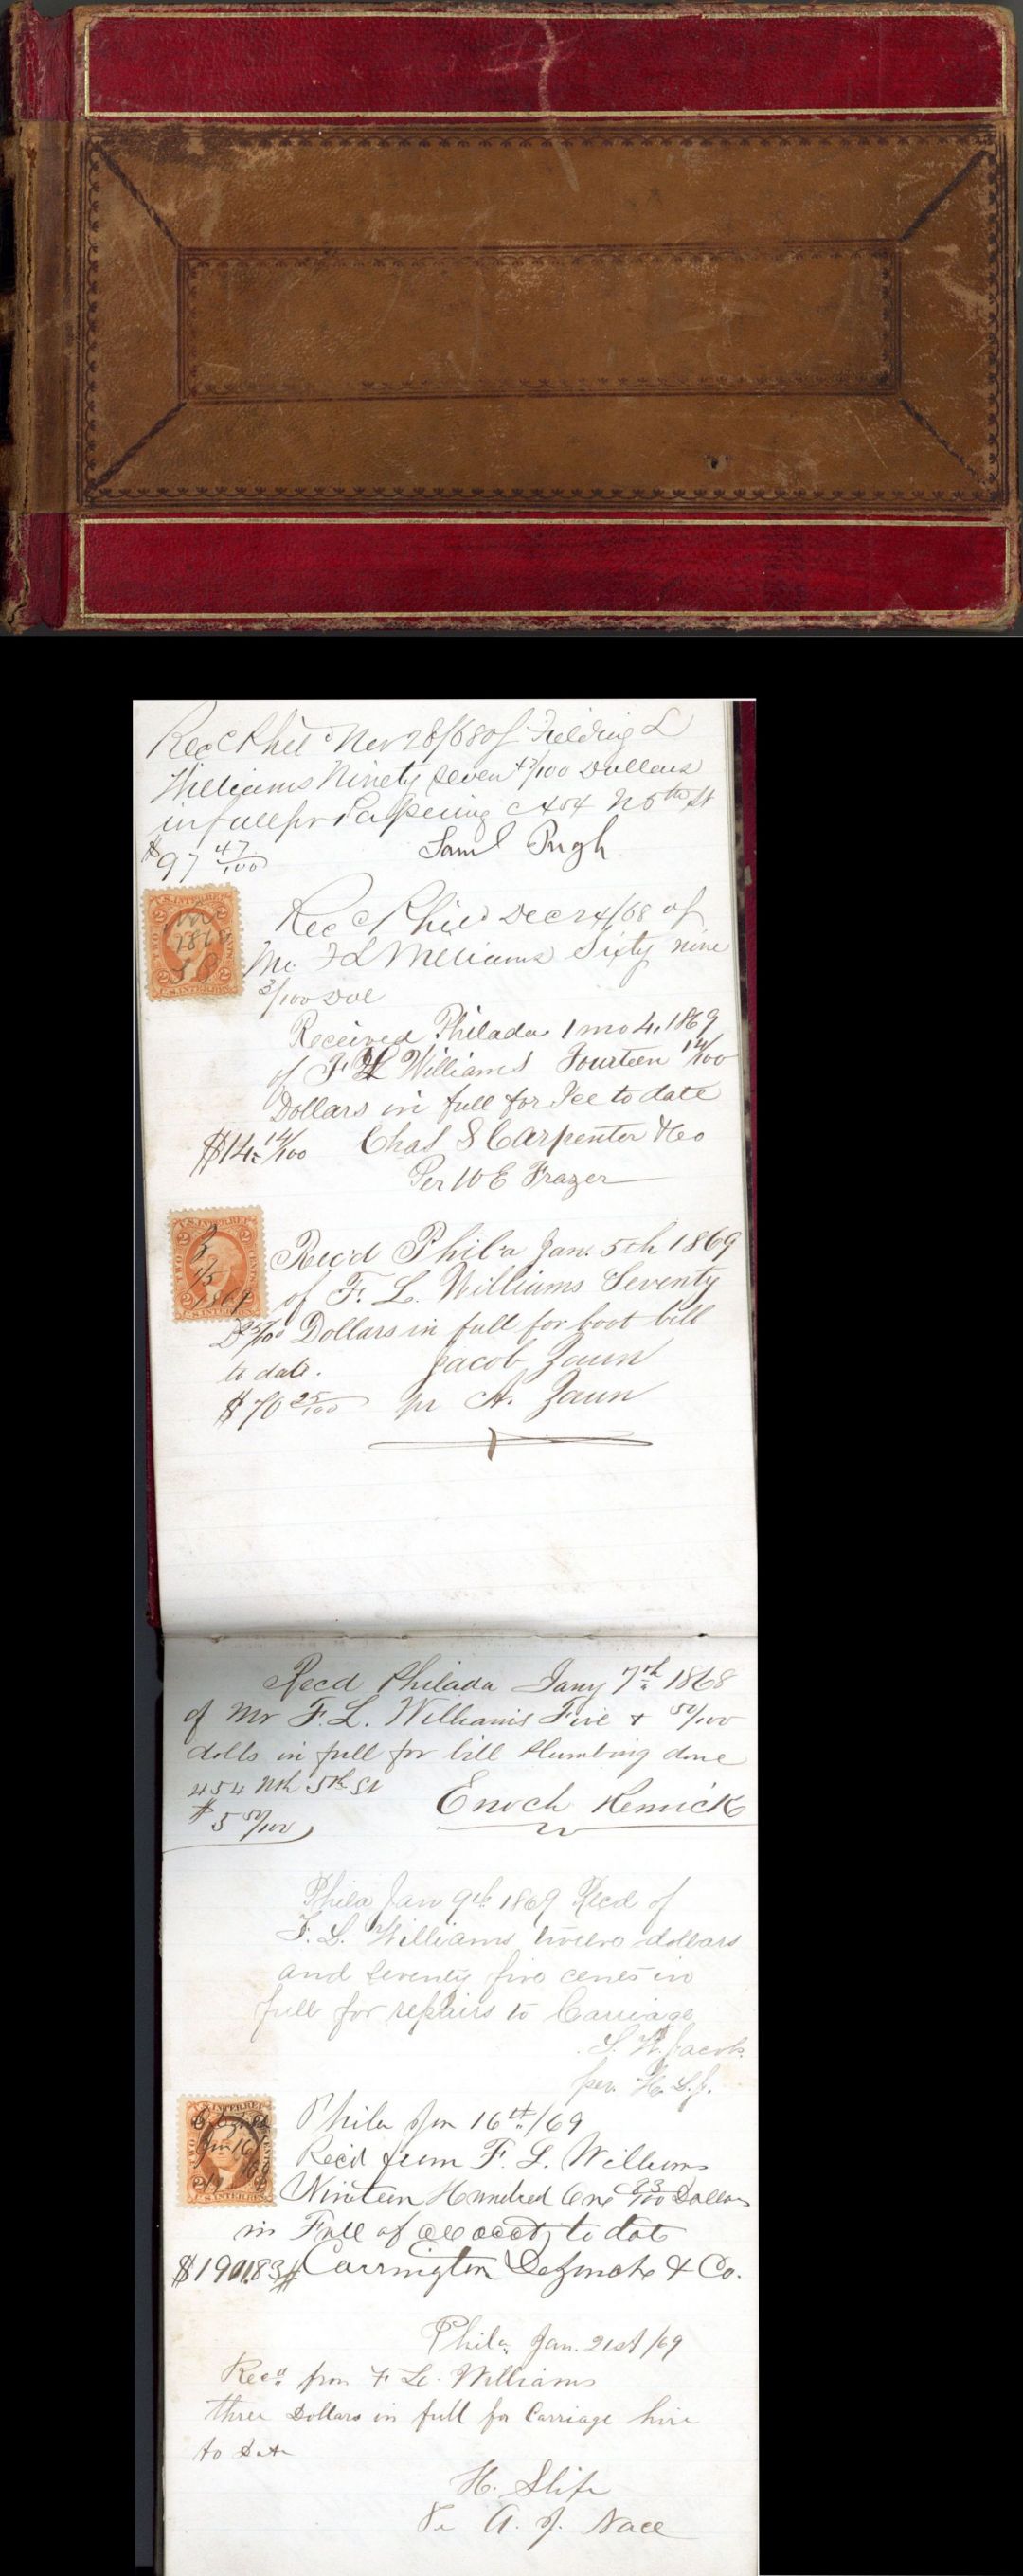 Rec'd Phila Nov 28/68 of Fielding L
Williams Ninety seven 47/100 Dollars
in full for Papering 454 N 5th St
$97 47/100
Saml Pugh
Rec'd Phila Dec 24/68 of
Mr F L Williams Sixty nine
3/100 Dol
1868
S
Received Philada 1 mo 4, 1869
of F L Williams Fourteen 14/100
Dollars in full for Ice to date
$14.14/100 Chas S Carpenter & Co
Per W E Frazer
U.S. INTER. REV.
1/5
1869
Rec'd Phil'a Jan. 5th 1869
of F. L. Williams Seventy
25/100 Dollars in full for boot bill
to date. Jacob Zaun
$70 25/100 pr A. Zaun
Recd Philada Jany 7th 1868
of Mr F. L. Williams Five & 50/100
dolls in full for bill Plumbing done
454 Nth 5th St
$5 50/100 Enoch Remick
Phila Jan 9th 1869 Recd of
F. L. Williams twelve dollars
and seventy five cents in
full for repairs to Carriage
S. W. Jacobs
per. H. S. J.
Jan 16
Phila Jan 16th/69
Rec'd from F. L. Williams
Nineteen Hundred One 83/100 Dollars
in Full of all acct, to date
$1901.83 Carrington & Co.
Phila. Jan. 21st/69
Recd from F L. Williams
three Dollars in full for Carriage hire
to Date
H. Slife
Per A. J. Nace